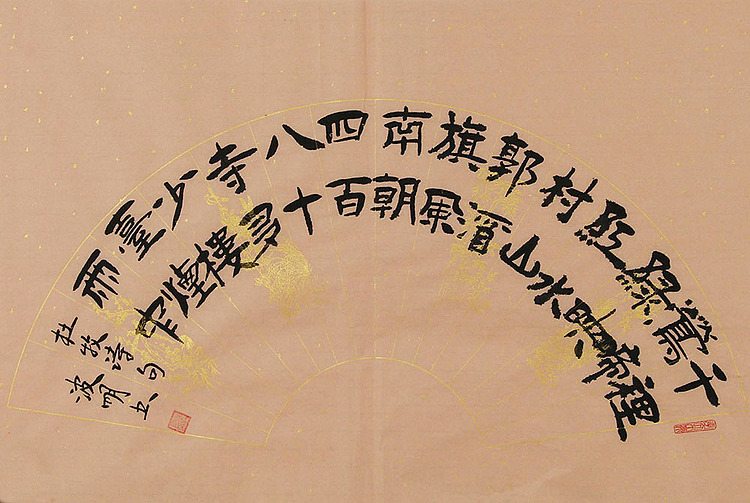 千裡
鶯啼
綠映
紅水
村山
郭酒
旗風
南朝
四百
八十
寺多
少樓
臺煙
雨中
杜牧诗句
波明书